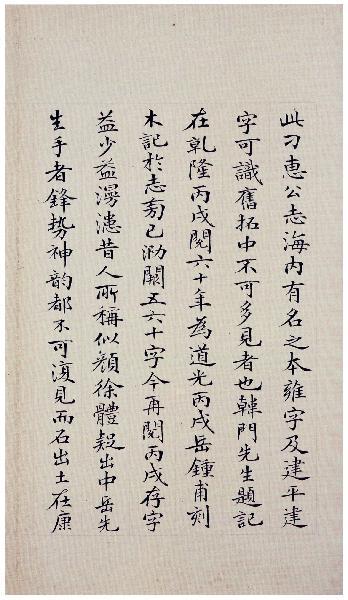 此刁惠公志海内有名之本雍字及建平建
字可識舊拓中不可多見者也韓門先生題記
在乾隆丙戌閱六十年為道光丙戌岳鍾甫刻
木記於志匋已泐闕五六十字今再閱丙戌存字
益少益漫漶昔人所稱似顏徐體疑出中岳先
生手者鋒勢神韵都不可復見而石出土在康